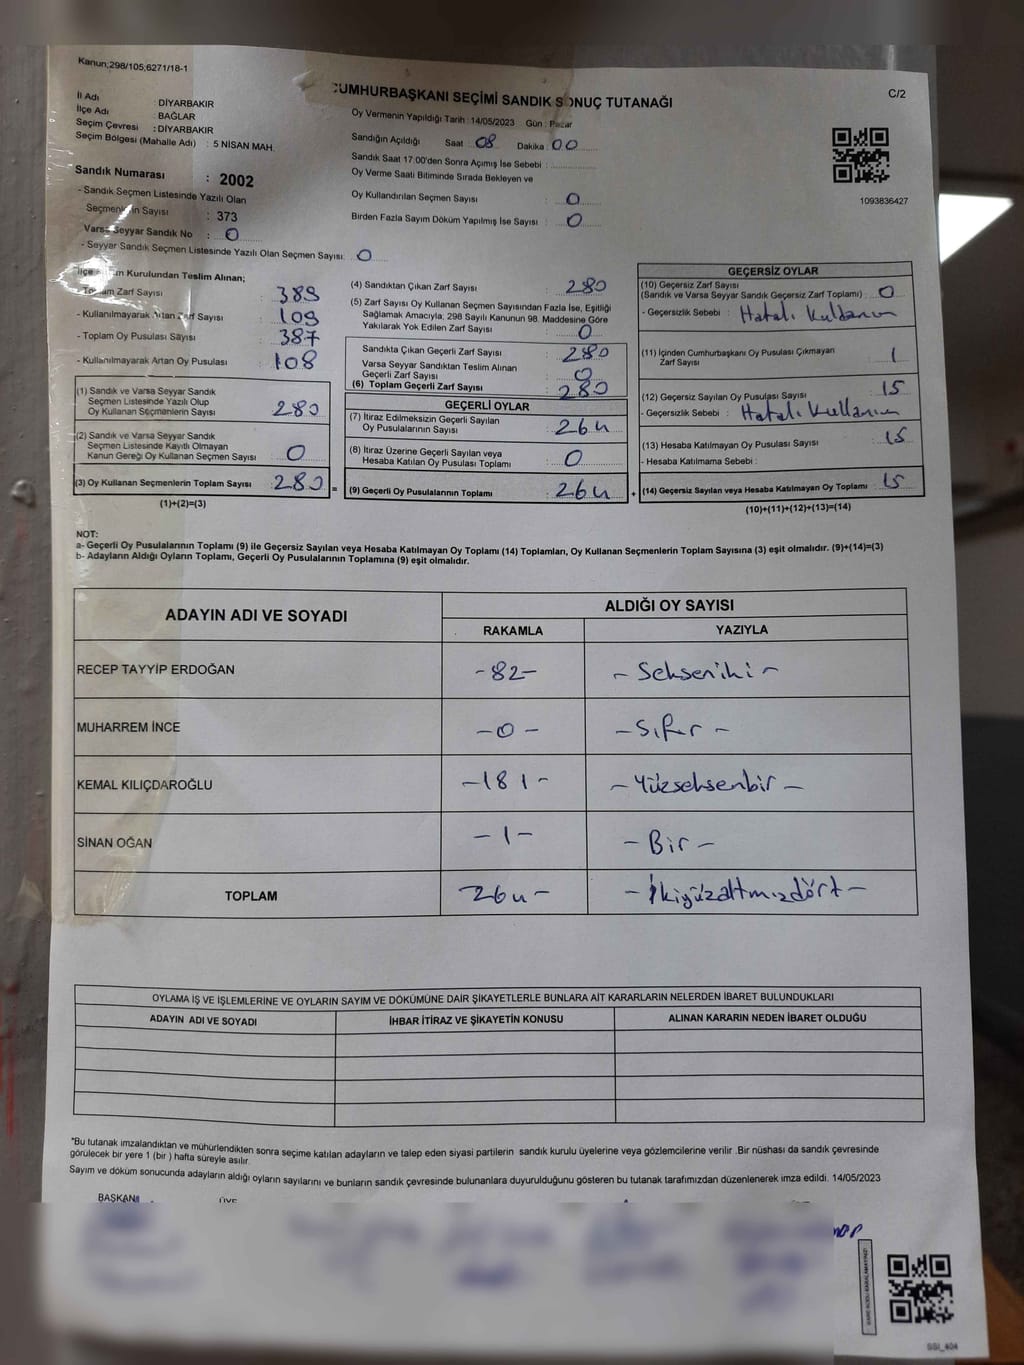 Kanun;298/105;6271/18-1
CUMHURBAŞKANI SEÇİMİ SANDIK SONUÇ TUTANAĞI
C/2
İl Adı : DİYARBAKIR
İlçe Adı : BAĞLAR
Seçim Çevresi : DİYARBAKIR
Seçim Bölgesi (Mahalle Adı) : 5 NİSAN MAH.
Oy Vermenin Yapıldığı Tarih : 14/05/2023 Gün : Pazar
Sandığın Açıldığı Saat 08 Dakika : 00
Sandık Saat 17:00'den Sonra Açımış İse Sebebi :
Oy Verme Saati Bitiminde Sırada Bekleyen ve
Oy Kullandırılan Seçmen Sayısı : 0
Birden Fazla Sayım Döküm Yapılmış İse Sayısı : 0
1093836427
Sandık Numarası : 2002
- Sandık Seçmen Listesinde Yazılı Olan
Seçmenlerin Sayısı : 373
Varsa Seyyar Sandık No : 0
- Seyyar Sandık Seçmen Listesinde Yazılı Olan Seçmen Sayısı: 0
İlçe Kurulundan Teslim Alınan;
- Toplam Zarf Sayısı : 389
- Kullanılmayarak Artan Zarf Sayısı : 109
- Toplam Oy Pusulası Sayısı : 387
- Kullanılmayarak Artan Oy Pusulası : 108
(1) Sandık ve Varsa Seyyar Sandık
Seçmen Listesinde Yazılı Olup
Oy Kullanan Seçmenlerin Sayısı : 280
(2) Sandık ve Varsa Seyyar Sandık
Seçmen Listesinde Kayıtlı Olmayan
Kanun Gereği Oy Kullanan Seçmen Sayısı : 0
(3) Oy Kullanan Seçmenlerin Toplam Sayısı : 280
(1)+(2)=(3)
(4) Sandıktan Çıkan Zarf Sayısı : 280
(5) Zarf Sayısı Oy Kullanan Seçmen Sayısından Fazla İse, Eşitliği
Sağlamak Amacıyla; 298 Sayılı Kanunun 98. Maddesine Göre
Yakılarak Yok Edilen Zarf Sayısı : 0
Sandıkta Çıkan Geçerli Zarf Sayısı : 280
Varsa Seyyar Sandıktan Teslim Alınan
Geçerli Zarf Sayısı : 0
(6) Toplam Geçerli Zarf Sayısı : 280
GEÇERLİ OYLAR
(7) İtiraz Edilmeksizin Geçerli Sayılan
Oy Pusulalarının Sayısı : 264
(8) İtiraz Üzerine Geçerli Sayılan veya
Hesaba Katılan Oy Pusulası Toplamı : 0
= (9) Geçerli Oy Pusulalarının Toplamı : 264
GEÇERSİZ OYLAR
(10) Geçersiz Zarf Sayısı
(Sandık ve Varsa Seyyar Sandık Geçersiz Zarf Toplamı) : 0
- Geçersizlik Sebebi : Hatalı Kullanım
(11) İçinden Cumhurbaşkanı Oy Pusulası Çıkmayan
Zarf Sayısı : 1
(12) Geçersiz Sayılan Oy Pusulası Sayısı : 15
- Geçersizlik Sebebi : Hatalı Kullanım
(13) Hesaba Katılmayan Oy Pusulası Sayısı : 15
- Hesaba Katılmama Sebebi :
+ (14) Geçersiz Sayılan veya Hesaba Katılmayan Oy Toplamı : 15
(10)+(11)+(12)+(13)=(14)
NOT:
a- Geçerli Oy Pusulalarının Toplamı (9) ile Geçersiz Sayılan veya Hesaba Katılmayan Oy Toplamı (14) Toplamları, Oy Kullanan Seçmenlerin Toplam Sayısına (3) eşit olmalıdır. (9)+(14)=(3)
b- Adayların Aldığı Oyların Toplamı, Geçerli Oy Pusulalarının Toplamına (9) eşit olmalıdır.
ADAYIN ADI VE SOYADI
ALDIĞI OY SAYISI
RAKAMLA YAZIYLA
RECEP TAYYİP ERDOĞAN -82- - Seksen iki -
MUHARREM İNCE -0- - Sıfır -
KEMAL KILIÇDAROĞLU -181- - Yüzseksenbir -
SİNAN OĞAN -1- - Bir -
TOPLAM 264- - İkiyüzaltmışdört -
OYLAMA İŞ VE İŞLEMLERİNE VE OYLARIN SAYIM VE DÖKÜMÜNE DAİR ŞİKAYETLERLE BUNLARA AİT KARARLARIN NELERDEN İBARET BULUNDUKLARI
ADAYIN ADI VE SOYADI İHBAR İTİRAZ VE ŞİKAYETİN KONUSU ALINAN KARARIN NEDEN İBARET OLDUĞU
*Bu tutanak imzalandıktan ve mühürlendikten sonra seçime katılan adayların ve talep eden siyasi partilerin sandık kurulu üyelerine veya gözlemcilerine verilir .Bir nüshası da sandık çevresinde
görülecek bir yere 1 (bir ) hafta süreyle asılır.
Sayım ve döküm sonucunda adayların aldığı oyların sayılarını ve bunların sandık çevresinde bulunanlara duyurulduğunu gösteren bu tutanak tarafımızdan düzenlenerek imza edildi. 14/05/2023
BAŞKAN ÜYE
SSI_404